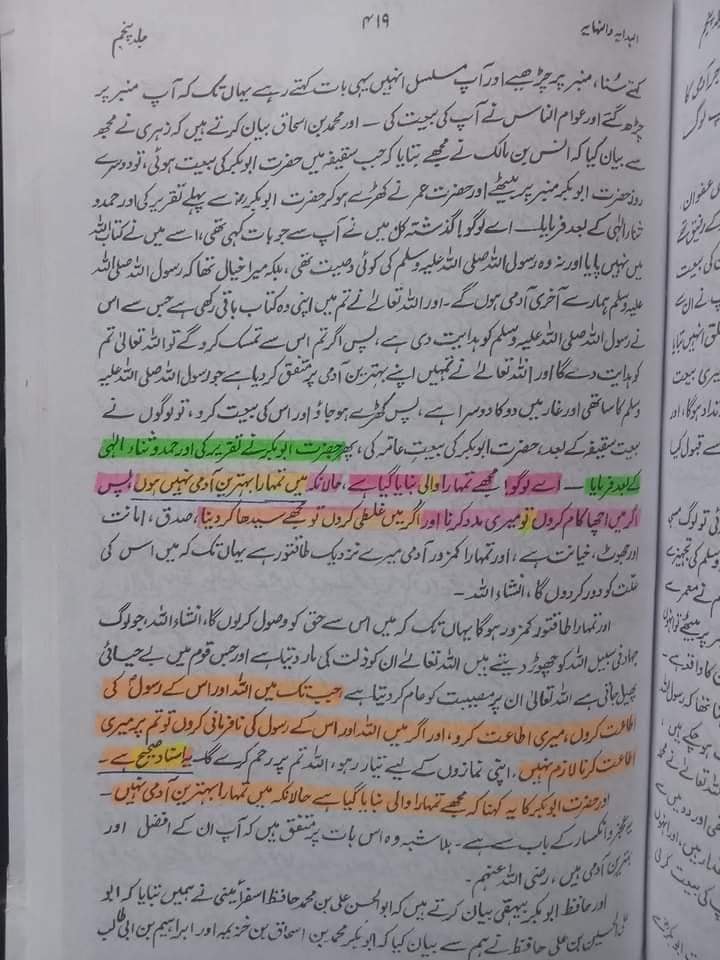 البدایہ والنہایہ ۴۱۹ جلد پنجم
کہتے سُنا، منبر پر چڑھیے اور آپ مسلسل انہیں یہی بات کہتے رہے یہاں تک کہ آپ منبر پر
چڑھ گئے اور عوام الناس نے آپ کی بیعت کی ــ اور محمد بن اسحاق بیان کرتے ہیں کہ زہری نے مجھ
سے بیان کیا کہ انس بن مالک نے مجھے بتایا کہ جب سقیفہ میں حضرت ابوبکر کی بیعت ہوئی، تو دوسرے
روز حضرت ابوبکر منبر پر بیٹھے اور حضرت عمر نے کھڑے ہو کر حضرت ابوبکرؓ سے پہلے تقریر کی اور حمد و
ثناء الٰہی کے بعد فرمایا ــ اے لوگو! گذشتہ کل میں نے آپ سے جو بات کہی تھی، اسے میں نے کتاب اللہ
میں نہیں پایا اور نہ وہ رسول اللہ صلی اللہ علیہ وسلم کی کوئی وصیت تھی، بلکہ میرا خیال تھا کہ رسول اللہ صلی اللہ
علیہ وسلم ہمارے آخری آدمی ہوں گے۔ اور اللہ تعالےٰ نے تم میں اپنی وہ کتاب باقی رکھی ہے جس سے اس
نے رسول اللہ صلی اللہ علیہ وسلم کو ہدایت دی ہے، پس اگر تم اس سے تمسک کرو گے تو اللہ تعالیٰ تم
کو ہدایت دے گا اور اللہ تعالےٰ نے تمہیں اپنے بہترین آدمی پر متفق کر دیا ہے جو رسول اللہ صلی اللہ علیہ
وسلم کا ساتھی اور غار میں دو کا دوسرا ہے، پس کھڑے ہو جاؤ اور اس کی بیعت کرو، تو لوگوں نے
بیعت سقیفہ کے بعد، حضرت ابوبکر کی بیعتِ عامہ کی، پھر حضرت ابوبکر نے تقریر کی اور حمد و ثناء الٰہی
کے بعد فرمایا ــ اے لوگو! مجھے تمہارا والی بنایا گیا ہے، حالانکہ میں تمہارا بہترین آدمی نہیں ہوں، پس
اگر میں اچھا کام کروں تو میری مدد کرنا اور اگر میں غلطی کروں تو مجھے سیدھا کر دینا، صدق، امانت
اور جھوٹ، خیانت ہے، اور تمہارا کمزور آدمی میرے نزدیک طاقتور ہے یہاں تک کہ میں اس کی
علّت کو دور کر دوں گا، انشاء اللہ۔
اور تمہارا طاقتور کمزور ہو گا یہاں تک کہ میں اس سے حق کو وصول کر لوں گا، انشاء اللہ، جو لوگ
جہاد فی سبیل اللہ کو چھوڑ دیتے ہیں اللہ تعالےٰ ان کو ذلت کی مار دیتا ہے اور جس قوم میں بے حیائی
پھیل جاتی ہے اللہ تعالیٰ ان پر مصیبت کو عام کر دیتا ہے، جب تک میں اللہ اور اس کے رسولؐ کی
اطاعت کروں، میری اطاعت کرو، اور اگر میں اللہ اور اس کے رسول کی نافرمانی کروں تو تم پر میری
اطاعت کرنا لازم نہیں۔ اپنی نمازوں کے لیے تیار رہو، اللہ تم پر رحم کرے گا۔ یہ اسناد صحیح ہے۔
اور حضرت ابوبکر کا یہ کہنا کہ مجھے تمہارا والی بنایا گیا ہے حالانکہ میں تمہارا بہترین آدمی نہیں۔
یہ عجز و انکسار کے باب سے ہے۔ بلاشبہ وہ اس بات پر متفق ہیں کہ آپ ان کے افضل اور
بہترین آدمی ہیں، رضی اللہ عنہم۔
اور حافظ ابوبکر بیہقی بیان کرتے ہیں کہ ابوالحسن علی بن محمد حافظ اسفرائینی نے ہمیں بتایا کہ ابو
علی الحسین بن علی حافظ نے ہم سے بیان کیا کہ ابوبکر محمد بن اسحاق بن خزیمہ اور ابراہیم بن ابی طالب